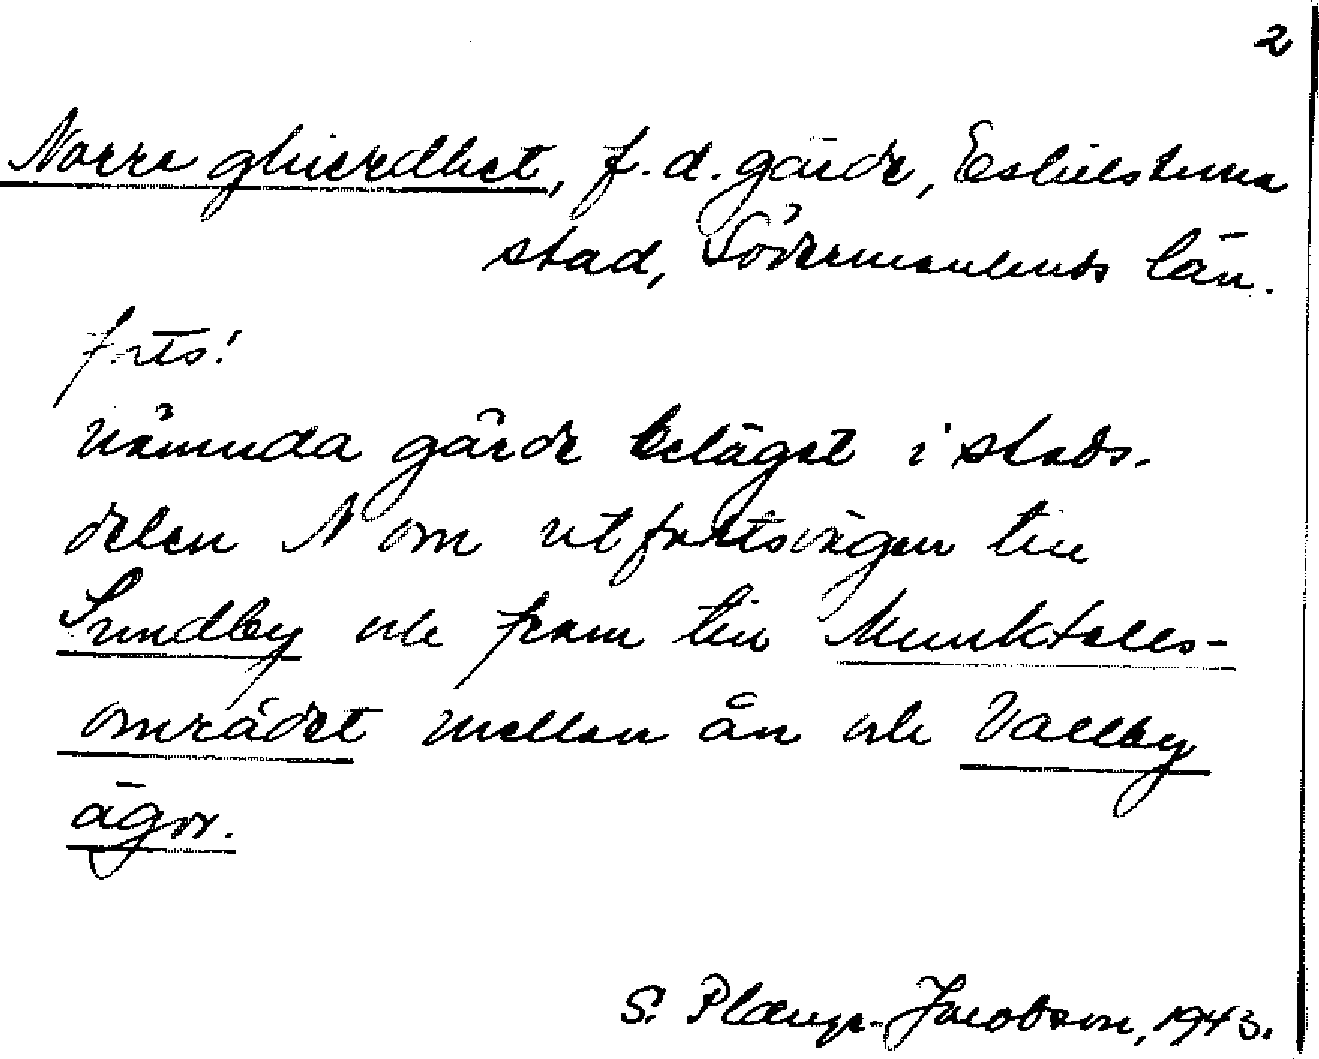 2
Norra ghierdhet, f.d. gärde, Eskilstuna
stad, Södermanlands län.
forts!
nämnda gärde beläget i stads-
delen N om utfartsvägen till
Sundby och fram till Munktells-
området mellan ån och Vallby
ägor.
S. Jacobson, 1943.